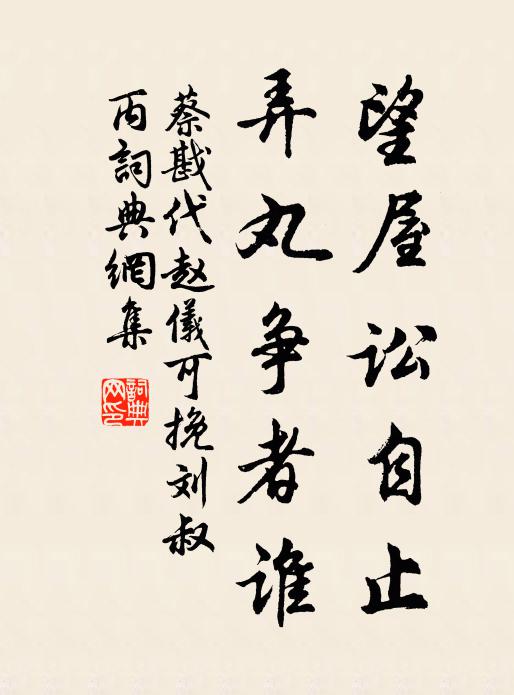 望屋讼自止
弄丸争者谁
蔡戡代赵儀可挽刘叔
丙詞典網集
詞典
网印